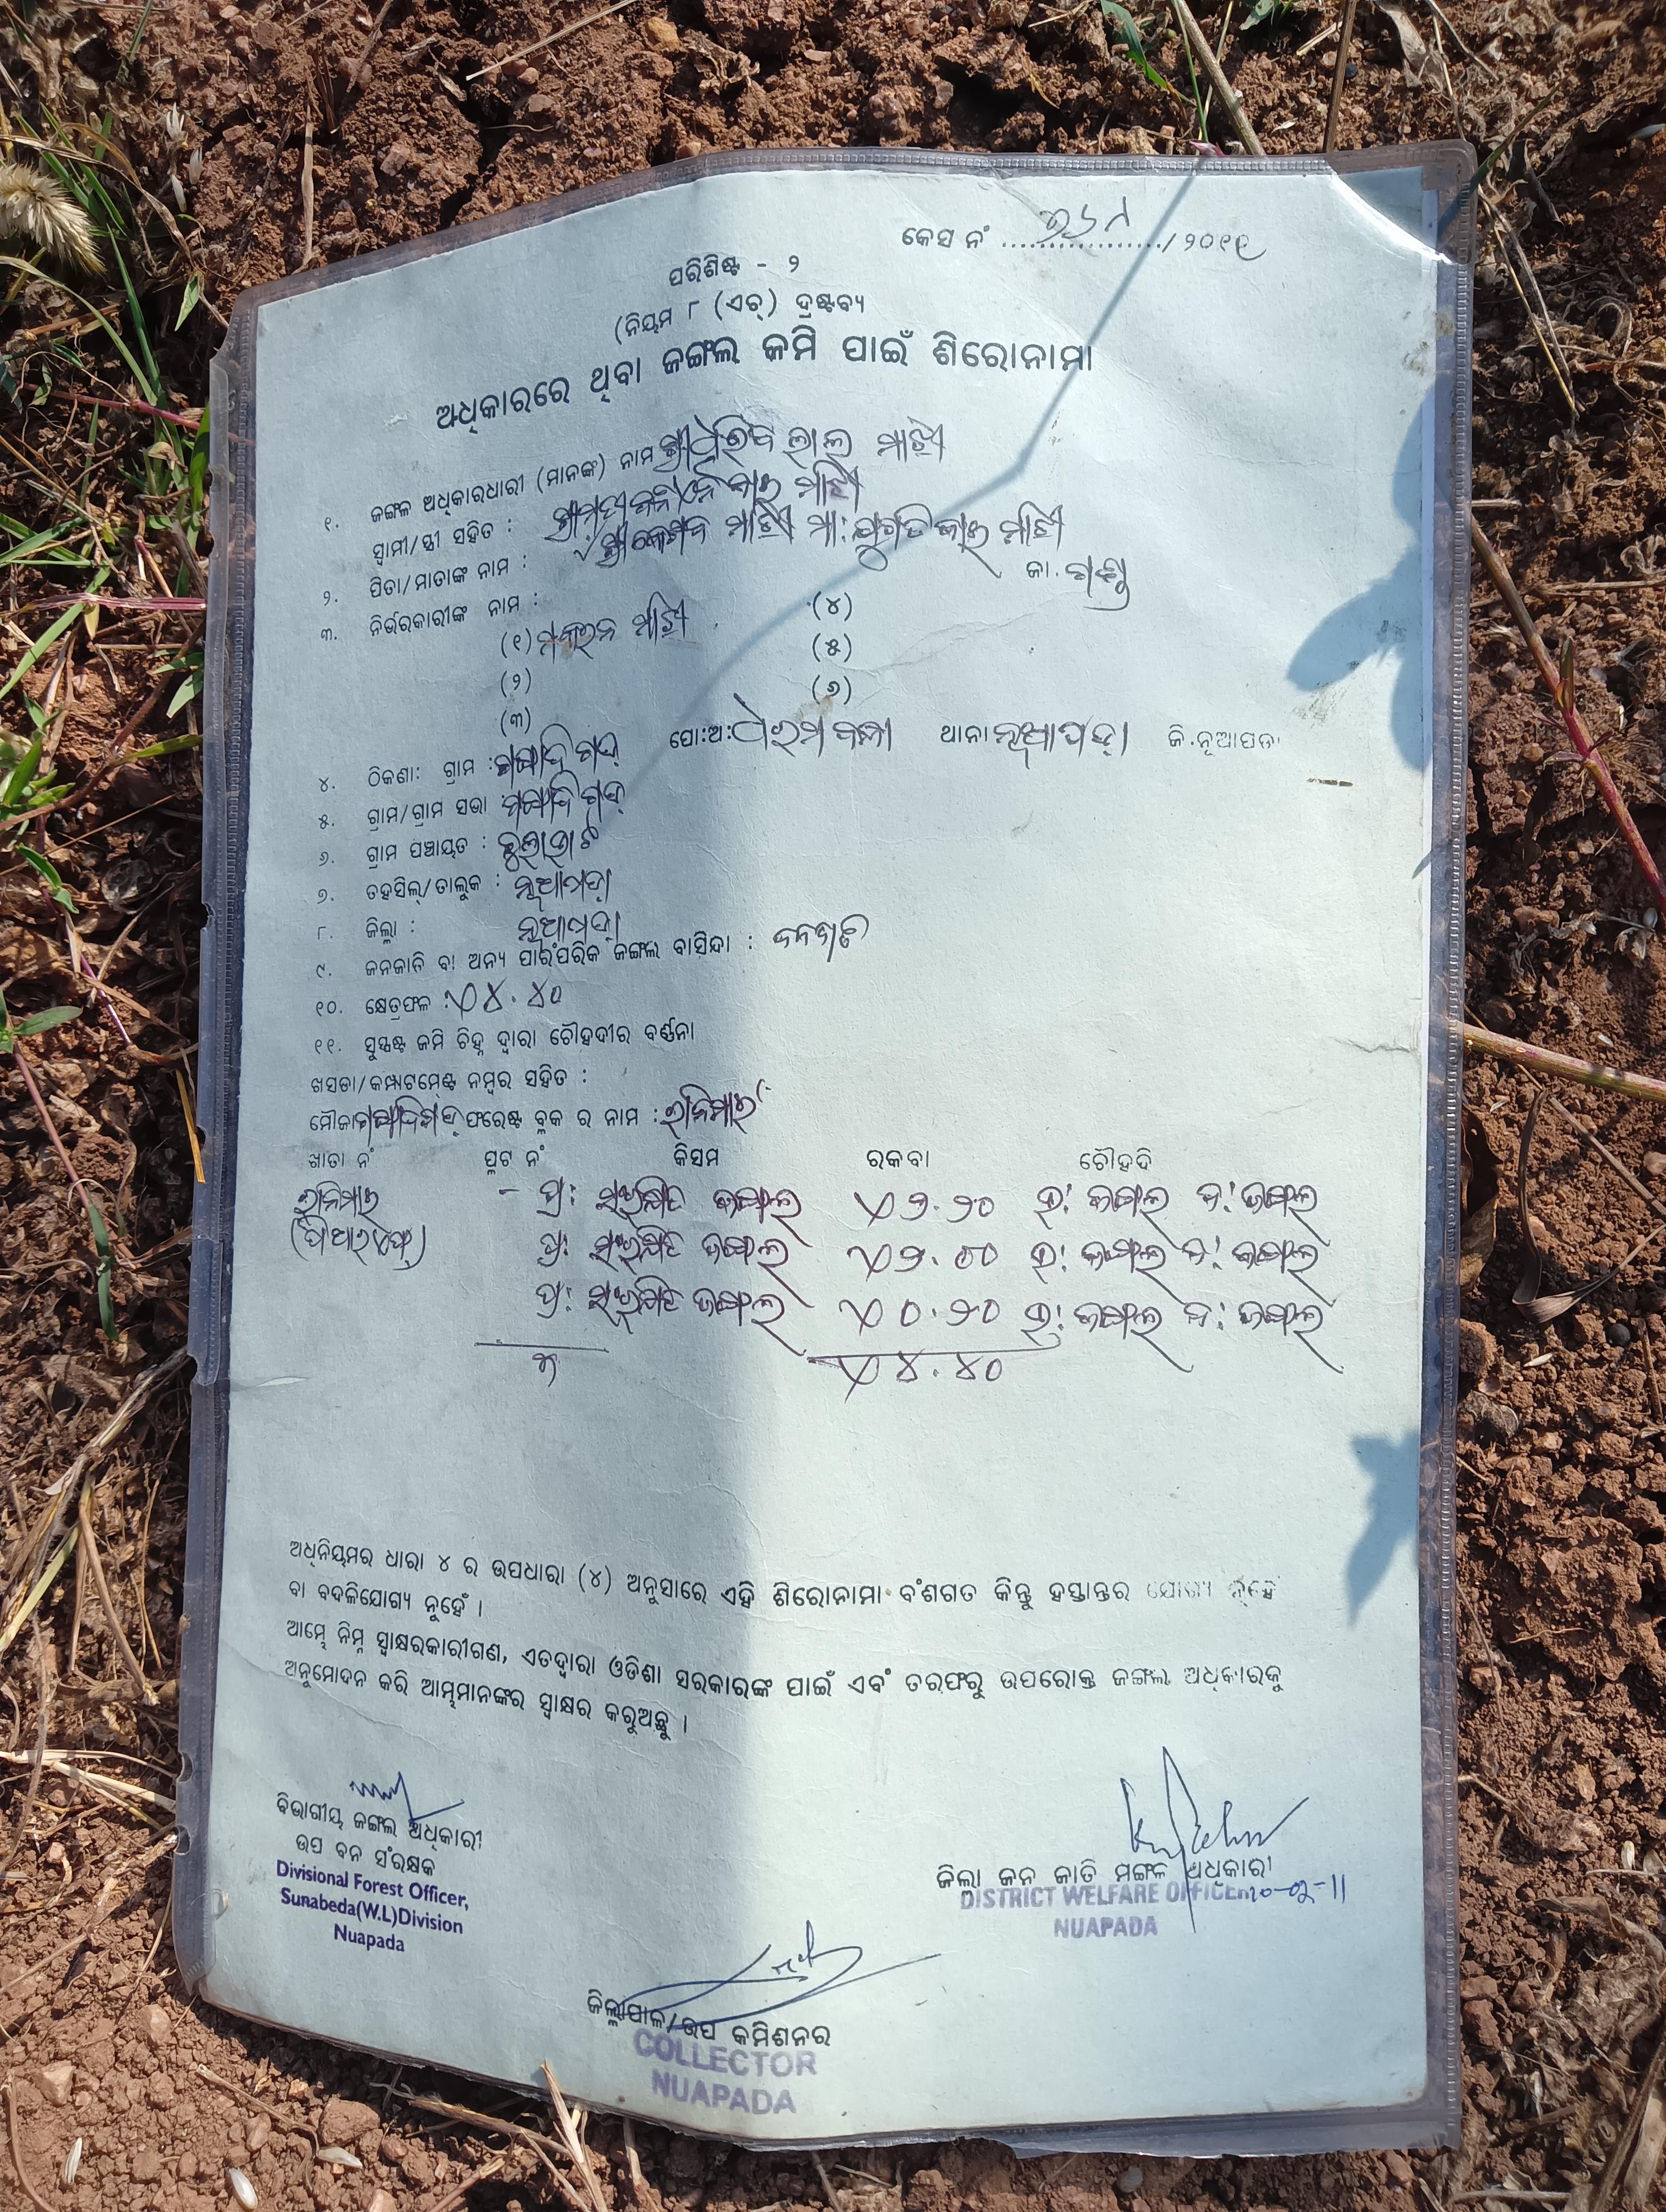 କେସ ନଂ ................./ ୨୦୧୧
ପରିଶିଷ୍ଟ - ୨
(ନିୟମ ୮ (ଏଚ୍) ଦ୍ରଷ୍ଟବ୍ୟ
ଅଧିକାରରେ ଥିବା ଜଙ୍ଗଲ ଜମି ପାଇଁ ଶିରୋନାମା
୧. ଜଙ୍ଗଳ ଅଧିକାରଧାରୀ (ମାନଙ୍କ) ନାମ ଲାଲ ମାଝୀ
ସ୍ଵାମୀ/ସ୍ତ୍ରୀ ସହିତ : ମାଝୀ
୨. ପିତା/ମାତାଙ୍କ ନାମ : ଶ୍ରୀ କେଶବ ମାଝୀ ମା: ଯୁଗତି ବାଇ ମାଝୀ
ଜା. ଗଣ୍ଡ
୩. ନିର୍ଭରକାରୀଙ୍କ ନାମ :
(୧) ମାଝୀ (୪)
(୨) (୫)
(୩) (୬)
୪. ଠିକଣା: ଗ୍ରାମ : ପୋ:ଅ: ଥାନା ନୂଆପଡ଼ା ଜି.ନୂଆପଡା
୫. ଗ୍ରାମ/ଗ୍ରାମ ସଭା :
୬. ଗ୍ରାମ ପଞ୍ଚାୟତ :
୭. ତହସିଲ୍/ତାଲୁକ : ନୂଆପଡ଼ା
୮. ଜିଲ୍ଲା : ନୂଆପଡ଼ା
୯. ଜନଜାତି ବା ଅନ୍ୟ ପାରଂପରିକ ଜଙ୍ଗଲ ବାସିନ୍ଦା : ଜନଜାତି
୧୦. କ୍ଷେତ୍ରଫଳ : ୪.୪୦
୧୧. ସୁସ୍ପଷ୍ଟ ଜମି ଚିହ୍ନ ଦ୍ୱାରା ଚୌହଦୀର ବର୍ଣ୍ଣନା
ଖସଡା/କମ୍ପାଟମେଣ୍ଟ ନମ୍ବର ସହିତ :
ମୌଜା ଫରେଷ୍ଟ ବ୍ଲକ ର ନାମ :
ଖାତା ନଂ ପ୍ଲଟ ନଂ କିସମ ରକବା ଚୌହଦି
- ପ୍ର: ସଂରକ୍ଷିତ ଜଙ୍ଗଲ ୨.୨୦ ଉ: ଜଙ୍ଗଲ ଦ: ଜଙ୍ଗଲ
(ପିଆରଏଫ୍) ପ୍ର: ସଂରକ୍ଷିତ ଜଙ୍ଗଲ ୨.୦୦ ଉ: ଜଙ୍ଗଲ ଦ: ଜଙ୍ଗଲ
ପ୍ର: ସଂରକ୍ଷିତ ଜଙ୍ଗଲ ୦.୨୦ ଉ: ଜଙ୍ଗଲ ଦ: ଜଙ୍ଗଲ
୩ ୪.୪୦
ଅଧିନିୟମର ଧାରା ୪ ର ଉପଧାରା (୪) ଅନୁସାରେ ଏହି ଶିରୋନାମା ବଂଶଗତ କିନ୍ତୁ ହସ୍ତାନ୍ତର ଯୋଗ୍ୟ ନୁହେଁ
ବା ବଦଳିଯୋଗ୍ୟ ନୁହେଁ ।
ଆମ୍ଭେ ନିମ୍ନ ସ୍ୱାକ୍ଷରକାରୀଗଣ, ଏତଦ୍ଵାରା ଓଡିଶା ସରକାରଙ୍କ ପାଇଁ ଏବଂ ତରଫରୁ ଉପରୋକ୍ତ ଜଙ୍ଗଲ ଅଧିକାରକୁ
ଅନୁମୋଦନ କରି ଆମ୍ଭମାନଙ୍କର ସ୍ୱାକ୍ଷର କରୁଅଛୁ ।
ବିଭାଗୀୟ ଜଙ୍ଗଲ ଅଧିକାରୀ
ଉପ ବନ ସଂରକ୍ଷକ
Divisional Forest Officer,
Sunabeda(W.L)Division
Nuapada
ଜିଲ୍ଲା ଜନ ଜାତି ମଙ୍ଗଳ ଅଧିକାରୀ
DISTRICT WELFARE OFFICER
NUAPADA
ଜିଲ୍ଲାପାଳ/ଉପ କମିଶନର
COLLECTOR
NUAPADA